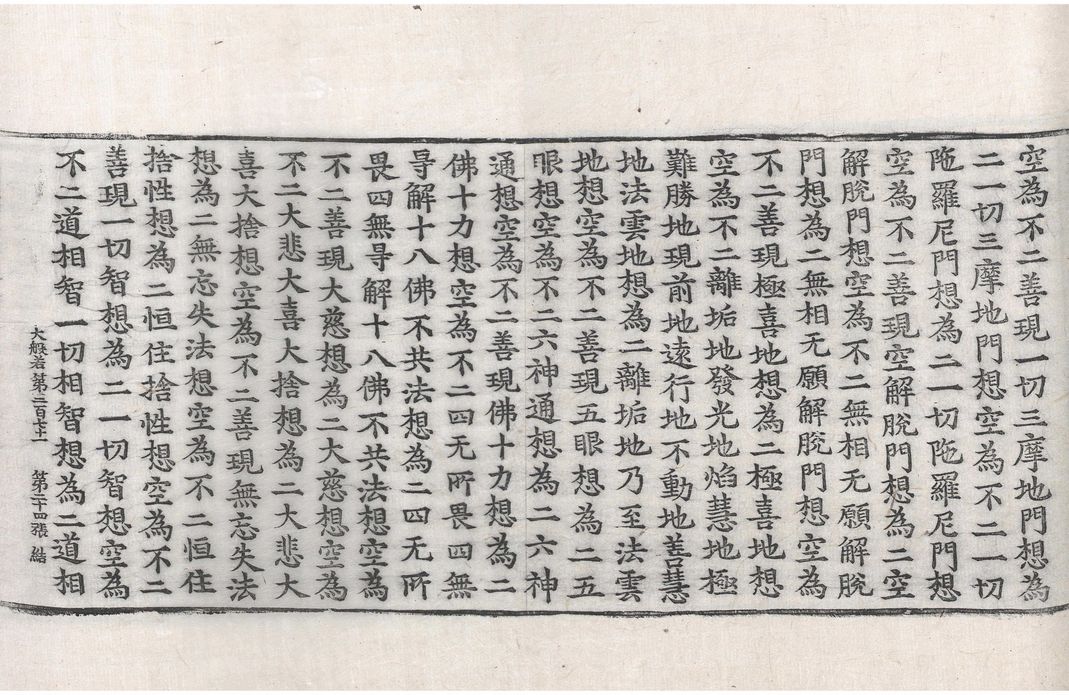 空為不二善現一切三摩地門想為
二一切三摩地門想空為不二一切
陁羅尼門想為二一切陁羅尼門想
空為不二善現空解脫門想為二空
解脫門想空為不二無相无願解脫
門想為二無相无願解脫門想空為
不二善現極喜地想為二極喜地想
空為不二離垢地發光地焰慧地極
難勝地現前地遠行地不動地善慧
地法雲地想為二離垢地乃至法雲
地想空為不二善現五眼想為二五
眼想空為不二六神通想為二六神
通想空為不二善現佛十力想為二
佛十力想空為不二四无所畏四無
㝵解十八佛不共法想為二四无所
畏四無㝵解十八佛不共法想空為
不二善現大慈想為二大慈想空為
不二大悲大喜大捨想為二大悲大
喜大捨想空為不二善現無忘失法
想為二無忘失法想空為不二恒住
捨性想為二恒住捨性想空為不二
善現一切智想為二一切智想空為
不二道相智一切相智想為二道相
大般若第三百七十一 第二十四張 結